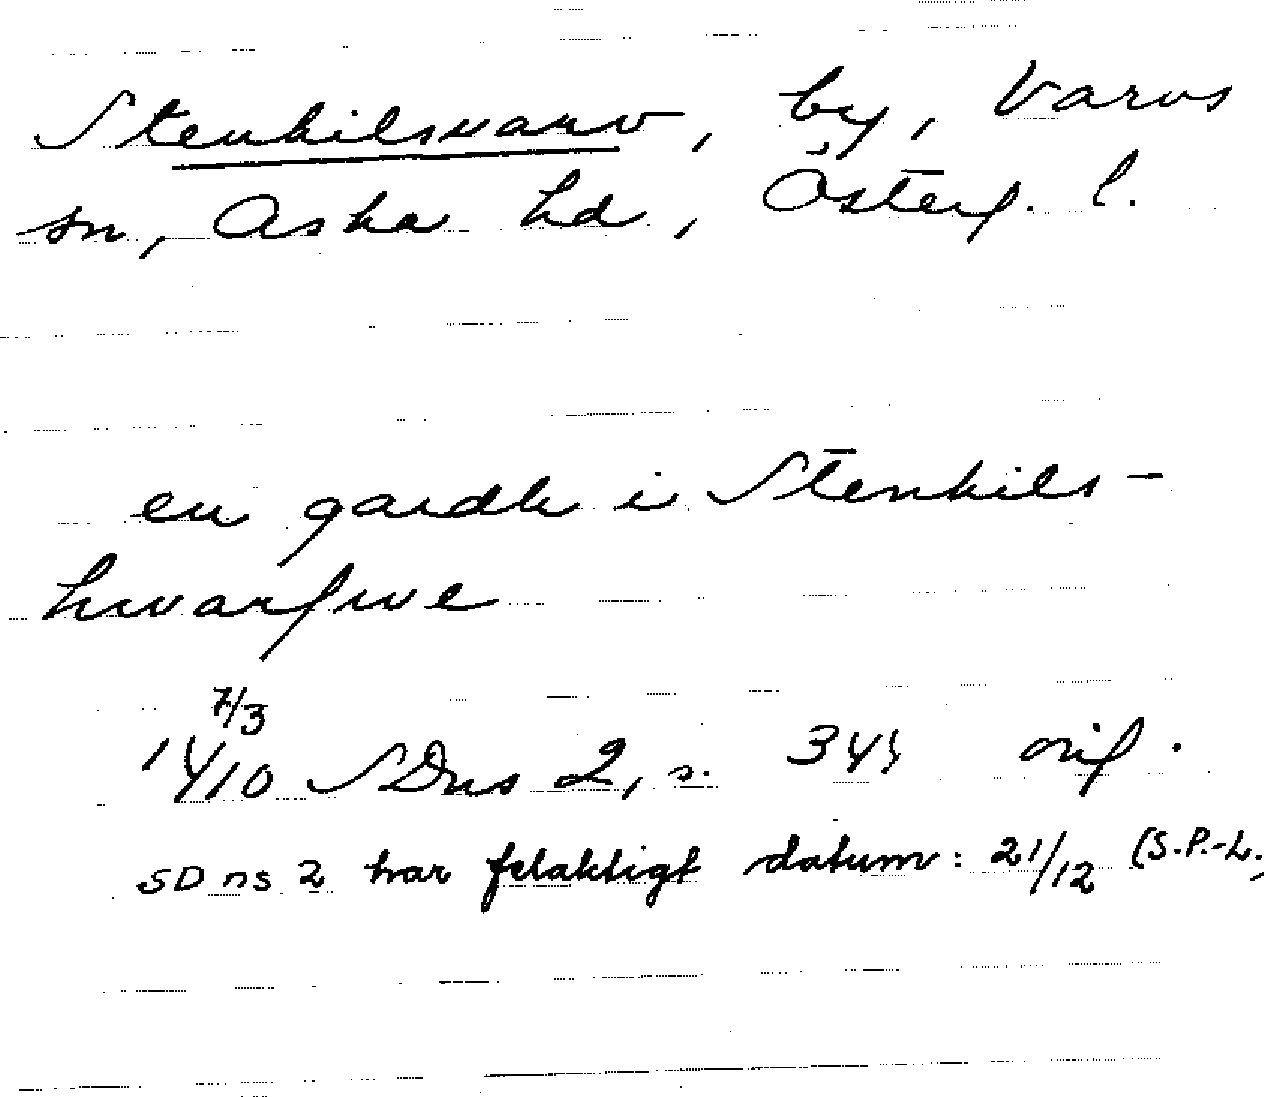 Stenkilsvarv, by, Varvs
sn, Aska hd, Österg. l.
en gardh i Stenkils-
hwarfwe
7/3
14/10 SDns 2, s. 345 orig.
SD ns 2 har felaktigt datum: 21/12 (S.P.-L.)